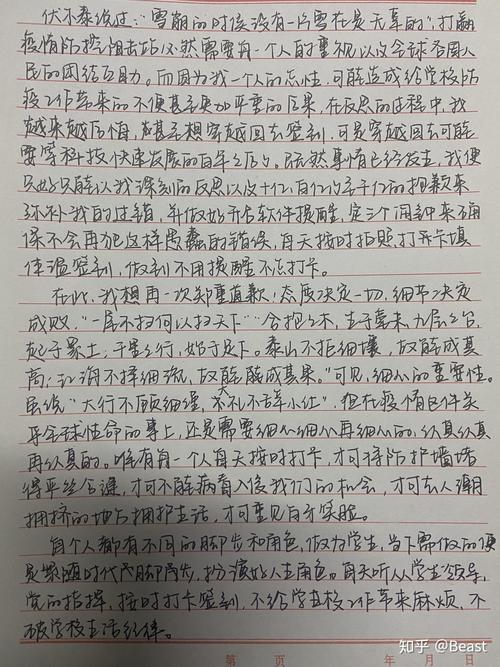 伏尔泰说过："雪崩的时候没有一片雪花是无辜的"。打赢
疫情防控阻击战必然需要每一个人的重视以及全球各国人
民的团结与互助。而因为我一个人的忘性，可能造成给学校防
疫工作带来的不便甚至更加严重的后果，在反思的过程中，我
越来越后悔，甚至想穿越回去签到，可是穿越回去可能
要等科技快速发展的百年之后了。既然事情已经发生，我便
只好只能以我深刻的反思以及十亿，百亿乃至千亿的抱歉来
弥补我的过错，并做好开启软件提醒，定三个闹钟来确
保不会再犯这样愚蠢的错误，每天按时拍照，打开卡填
体温签到，做到不用提醒不忘打卡。
在此，我想再一次郑重道歉，态度决定一切，细节决定
成败。"一屋不扫何以扫天下""合抱之木，生于毫末，九层之台，
起于累土，千里之行，始于足下。泰山不拒细壤，故能成其
高；江海不择细流，故能成其深。"可见，细心的重要性。
虽说"大行不顾细谨，大礼不辞小让"，但在疫情已件关
乎全球性命的事上，还是需要细心细心再细心的，认真认真
再认真的。唯有每一个人每天按时打卡，才可将防护墙堵
得严丝合缝，才可不能病毒入侵我们的机会，才可在人潮
拥挤的地方拥护生活，才可重见自子笑脸。
每个人都有不同的脚步和角色，做为学生，当下需做的便
是紧随时代脚步，扮演好人生角色。每天听从学生领导，
党的指挥，按时打卡签到，不给学校工作带来麻烦，不
破学校生活纪律。
第 页 年 月 日
知乎 @Beast